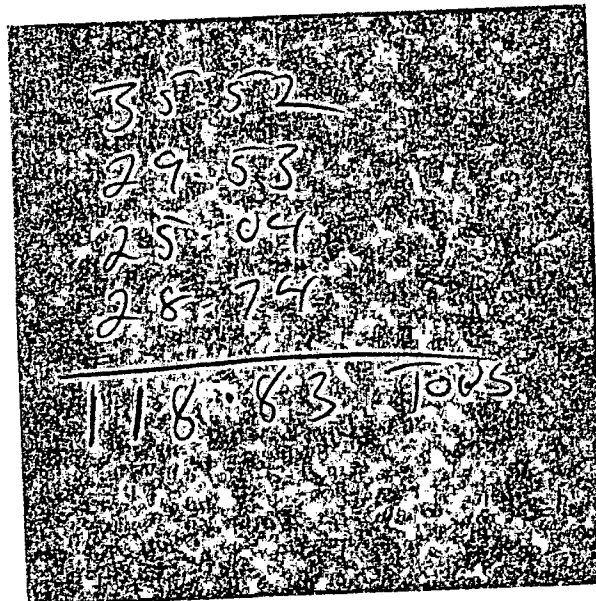 35.52
29.53
25.04
28.74
118.83 Tons